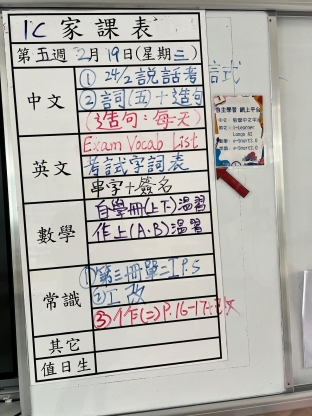 1C 家課表
第五週 2月19日(星期三)
中文
① 24/2說話考試
② 詞(五)+造句
(造句:每天)
英文
Exam Vocab List
考試字詞表
串字+簽名
數學
自學冊(上下)溫習
作上(A.B)溫習
常識
①第三冊單二工P.5
②工改
③作(二)P.16-17
其它
值日生
自主學習 網上平台